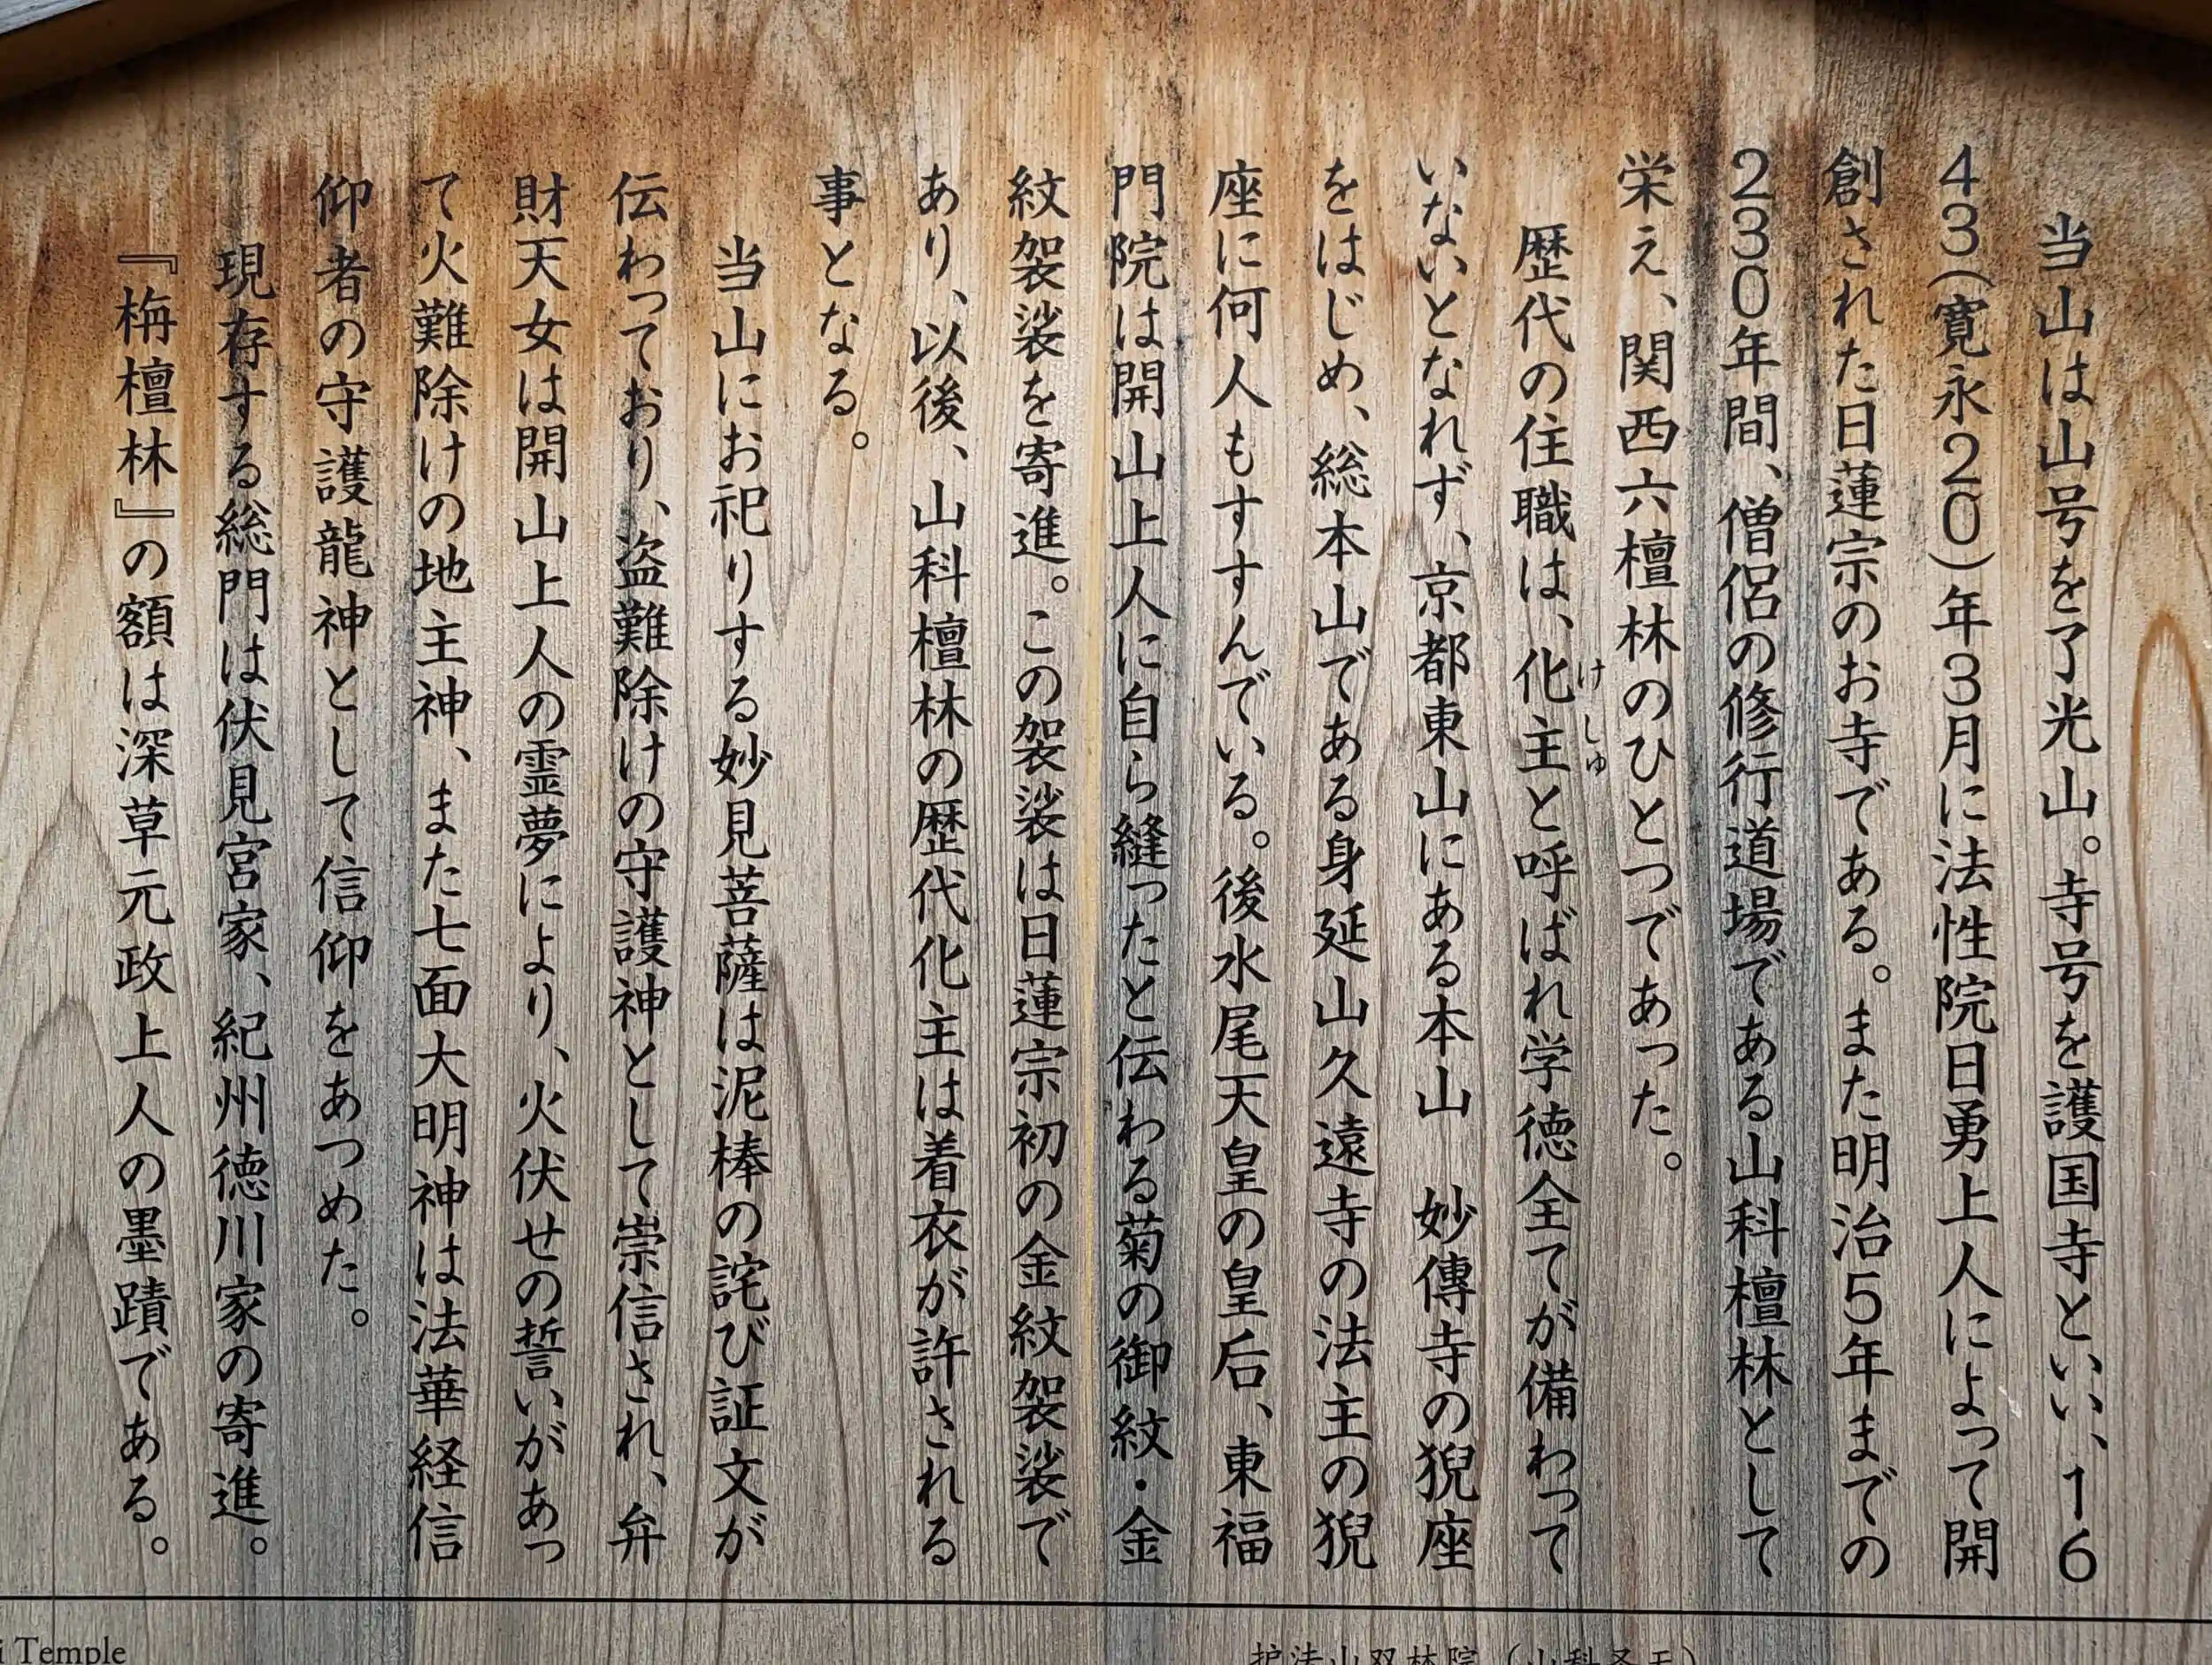 当山は山号を了光山。寺号を護国寺といい、１６
４３（寛永２０）年３月に法性院日勇上人によって開
創された日蓮宗のお寺である。また明治５年までの
２３０年間、僧侶の修行道場である山科檀林として
栄え、関西六檀林のひとつであった。
歴代の住職は、化主と呼ばれ学徳全てが備わって
けしゅ
いないとなれず、京都東山にある本山　妙傳寺の猊座
をはじめ、総本山である身延山久遠寺の法主の猊
座に何人もすすんでいる。後水尾天皇の皇后、東福
門院は開山上人に自ら縫ったと伝わる菊の御紋・金
紋袈裟を寄進。この袈裟は日蓮宗初の金紋袈裟で
あり、以後、山科檀林の歴代化主は着衣が許される
事となる。
当山にお祀りする妙見菩薩は泥棒の詫び証文が
伝わっており、盗難除けの守護神として崇信され、弁
財天女は開山上人の霊夢により、火伏せの誓いがあっ
て火難除けの地主神、また七面大明神は法華経信
仰者の守護龍神として信仰をあつめた。
現存する総門は伏見宮家、紀州徳川家の寄進。
『栴檀林』の額は深草元政上人の墨蹟である。
i Temple
护法山双林院（山科圣天）